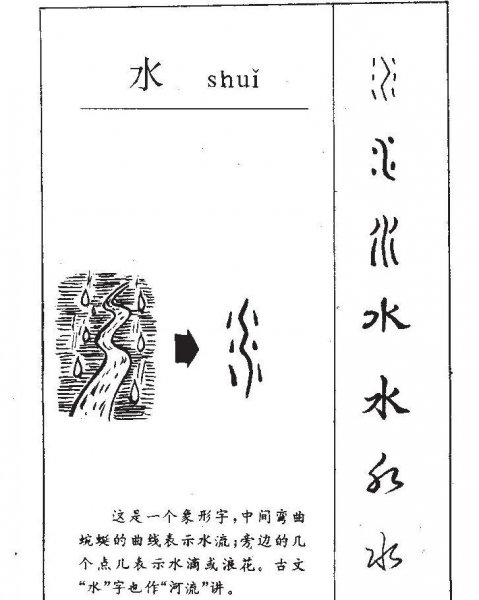 水 shuǐ
水
水
水
水
这是一个象形字,中间弯曲
蜿蜒的曲线表示水流;旁边的几
个点儿表示水滴或浪花。古文
“水”字也作“河流”讲。